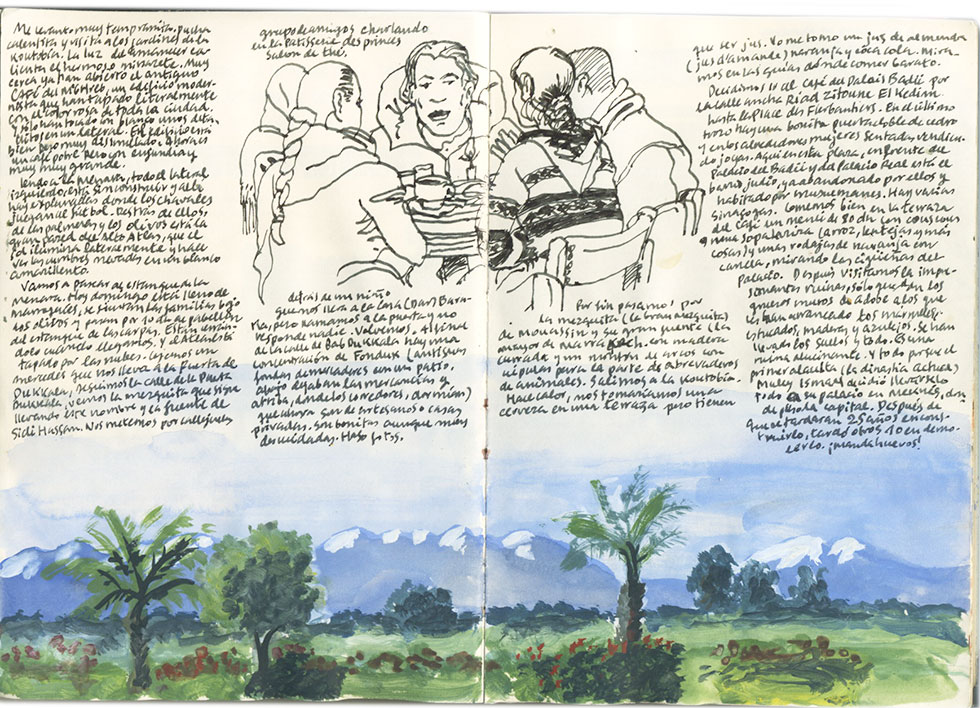 Me levanto muy tempranito, ducha
calentita y visita a los jardines de la
Koutobia. La luz de amanecer ca-
lienta el hermoso minarete. Muy
cerca ya han abierto el antiguo
Café du un edificio moder-
nista que han tapado literalmente
con el color rosa de toda la ciudad,
y sólo han tocado en blanco unos deta-
llitos en un lateral. El edificio está
bien pero muy disimulado. Ahora es
un café pobre pero con enjundia y
muy muy grande.
Yendo a la a todo el lateral
izquierdo está sin construir y allí
hay explanadas donde los chavales
juegan al fútbol. Detrás de ellos,
de las palmeras y los olivos está la
gran pared del Alto Atlas, que el
sol ilumina lateralmente y hace
ver las cumbres nevadas en un blanco
amarillento.
Vamos a pasear al estanque de la
Menara. Hoy domingo está lleno de
marroquíes, se sientan las familias bajo
los olivos y pagan por 10 dh al pabellón
del estanque de las carpas. Están
dolo cuando llegamos, y el Atlas está
tapado por las nubes. Cogemos un
mercedes que nos lleva a la Puerta de
Dukkala. Seguimos la calle de la Puerta
Dukkala, vemos la mezquita que sigue
llevando este nombre y la fuente de
Sidi Hassan. Nos metemos por callejones
grupo de amigos charlando
en la Patisserie des princes
Salon de thé.
detrás de un niño
que nos lleva a la casa (Dar) Bara-
ka, pero llamamos a la puerta y no
responde nadie. Volvemos. Al final
de la calle de Bab Dukkala hay una
concentración de Fondux (antiguas
fondas de mercaderes con un patio,
abajo dejaban las mercancías y
arriba, donde los corredores, dormían)
que ahora son de artesanos o casas
privadas. Son bonitas aunque muy
descuidadas. Hago fotos.
Por fin pasamos por
la mezquita (la gran mezquita)
de Mouassine y su gran fuente (la
mayor de Marrakech, con madera
labrada y un montón de arcos con
cúpulas para la parte de abrevaderos
de animales. Salimos a la Koutobia.
Hace calor, nos tomaríamos una
cerveza en una terraza pero tienen
que ser jus. Yo me tomo un jus de almendra
(jus d'amande) naranja y coca cola. Mira-
mos en las guías dónde comer barato.
Decidimos ir al Café del Palais Badii por
la calle ancha Riad Zitoune El Kedim
hasta la Place des Ferbantiers. En el último
trozo hay una bonita puerta doble de cedro
y en los alrededores mujeres sentadas vendien-
do joyas. Aquí en esta plaza, enfrente del
Palacio del Badii y del Palacio Real está el
barrio judío, ya abandonado por ellos y
habitado por musulmanes. Hay varias
sinagogas. Comemos bien en la terraza
del café un menú de 90 dh con couscous
y una sopa harira (arroz, lentejas y más
cosas) y unas rodajas de naranja con
canela, mirando las cigüeñas del
Palacio. Después visitamos la impre-
sionante ruina, sólo quedan los
muros de adobe a los que
le han arrancado los mármoles,
estucados, maderas y azulejos. Se han
llevado los suelos y todo. Es una
ruina alucinante. Y todo porque el
primer alauita (la dinastía actual)
Muley Ismael decidió llevárselo
todo a su palacio en Meknés,
capital. Después de
que se tardaran 25 años en cons-
truirlo, tardó otros 10 en demo-
lerlo. ¡manda huevos!